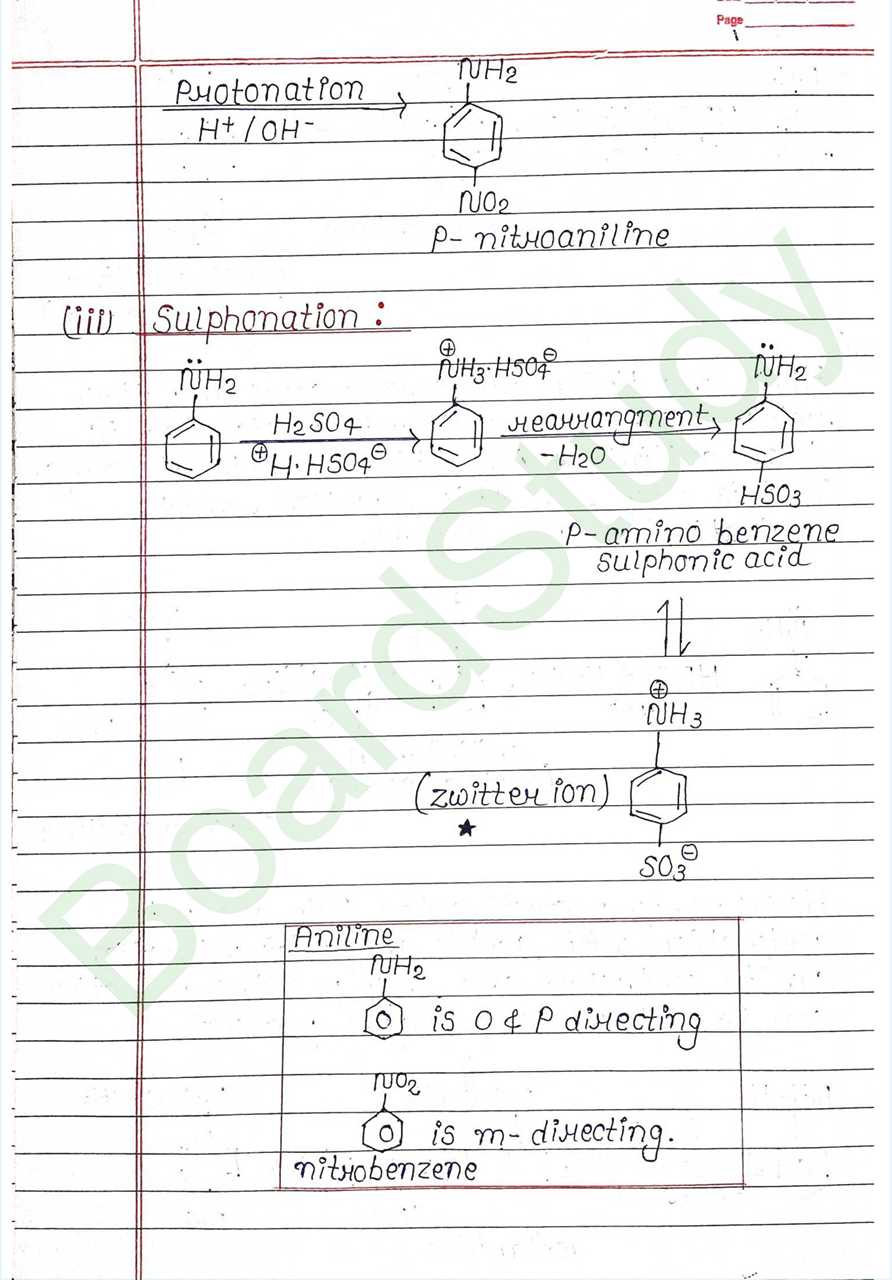 Page
Protonation
H+ / OH-
NH2
NO2
P- nitroaniline
(iii) Sulphonation :
N̈H2
H2SO4
⊕H·HSO4⊖
⊕
NH3·HSO4⊖
rearrangment
-H2O
N̈H2
HSO3
P-amino benzene
sulphonic acid
⊕
NH3
(zwitter ion)
★
SO3⊖
Aniline
NH2
is O & P directing
NO2
is m- directing.
nitrobenzene
BoardStudy